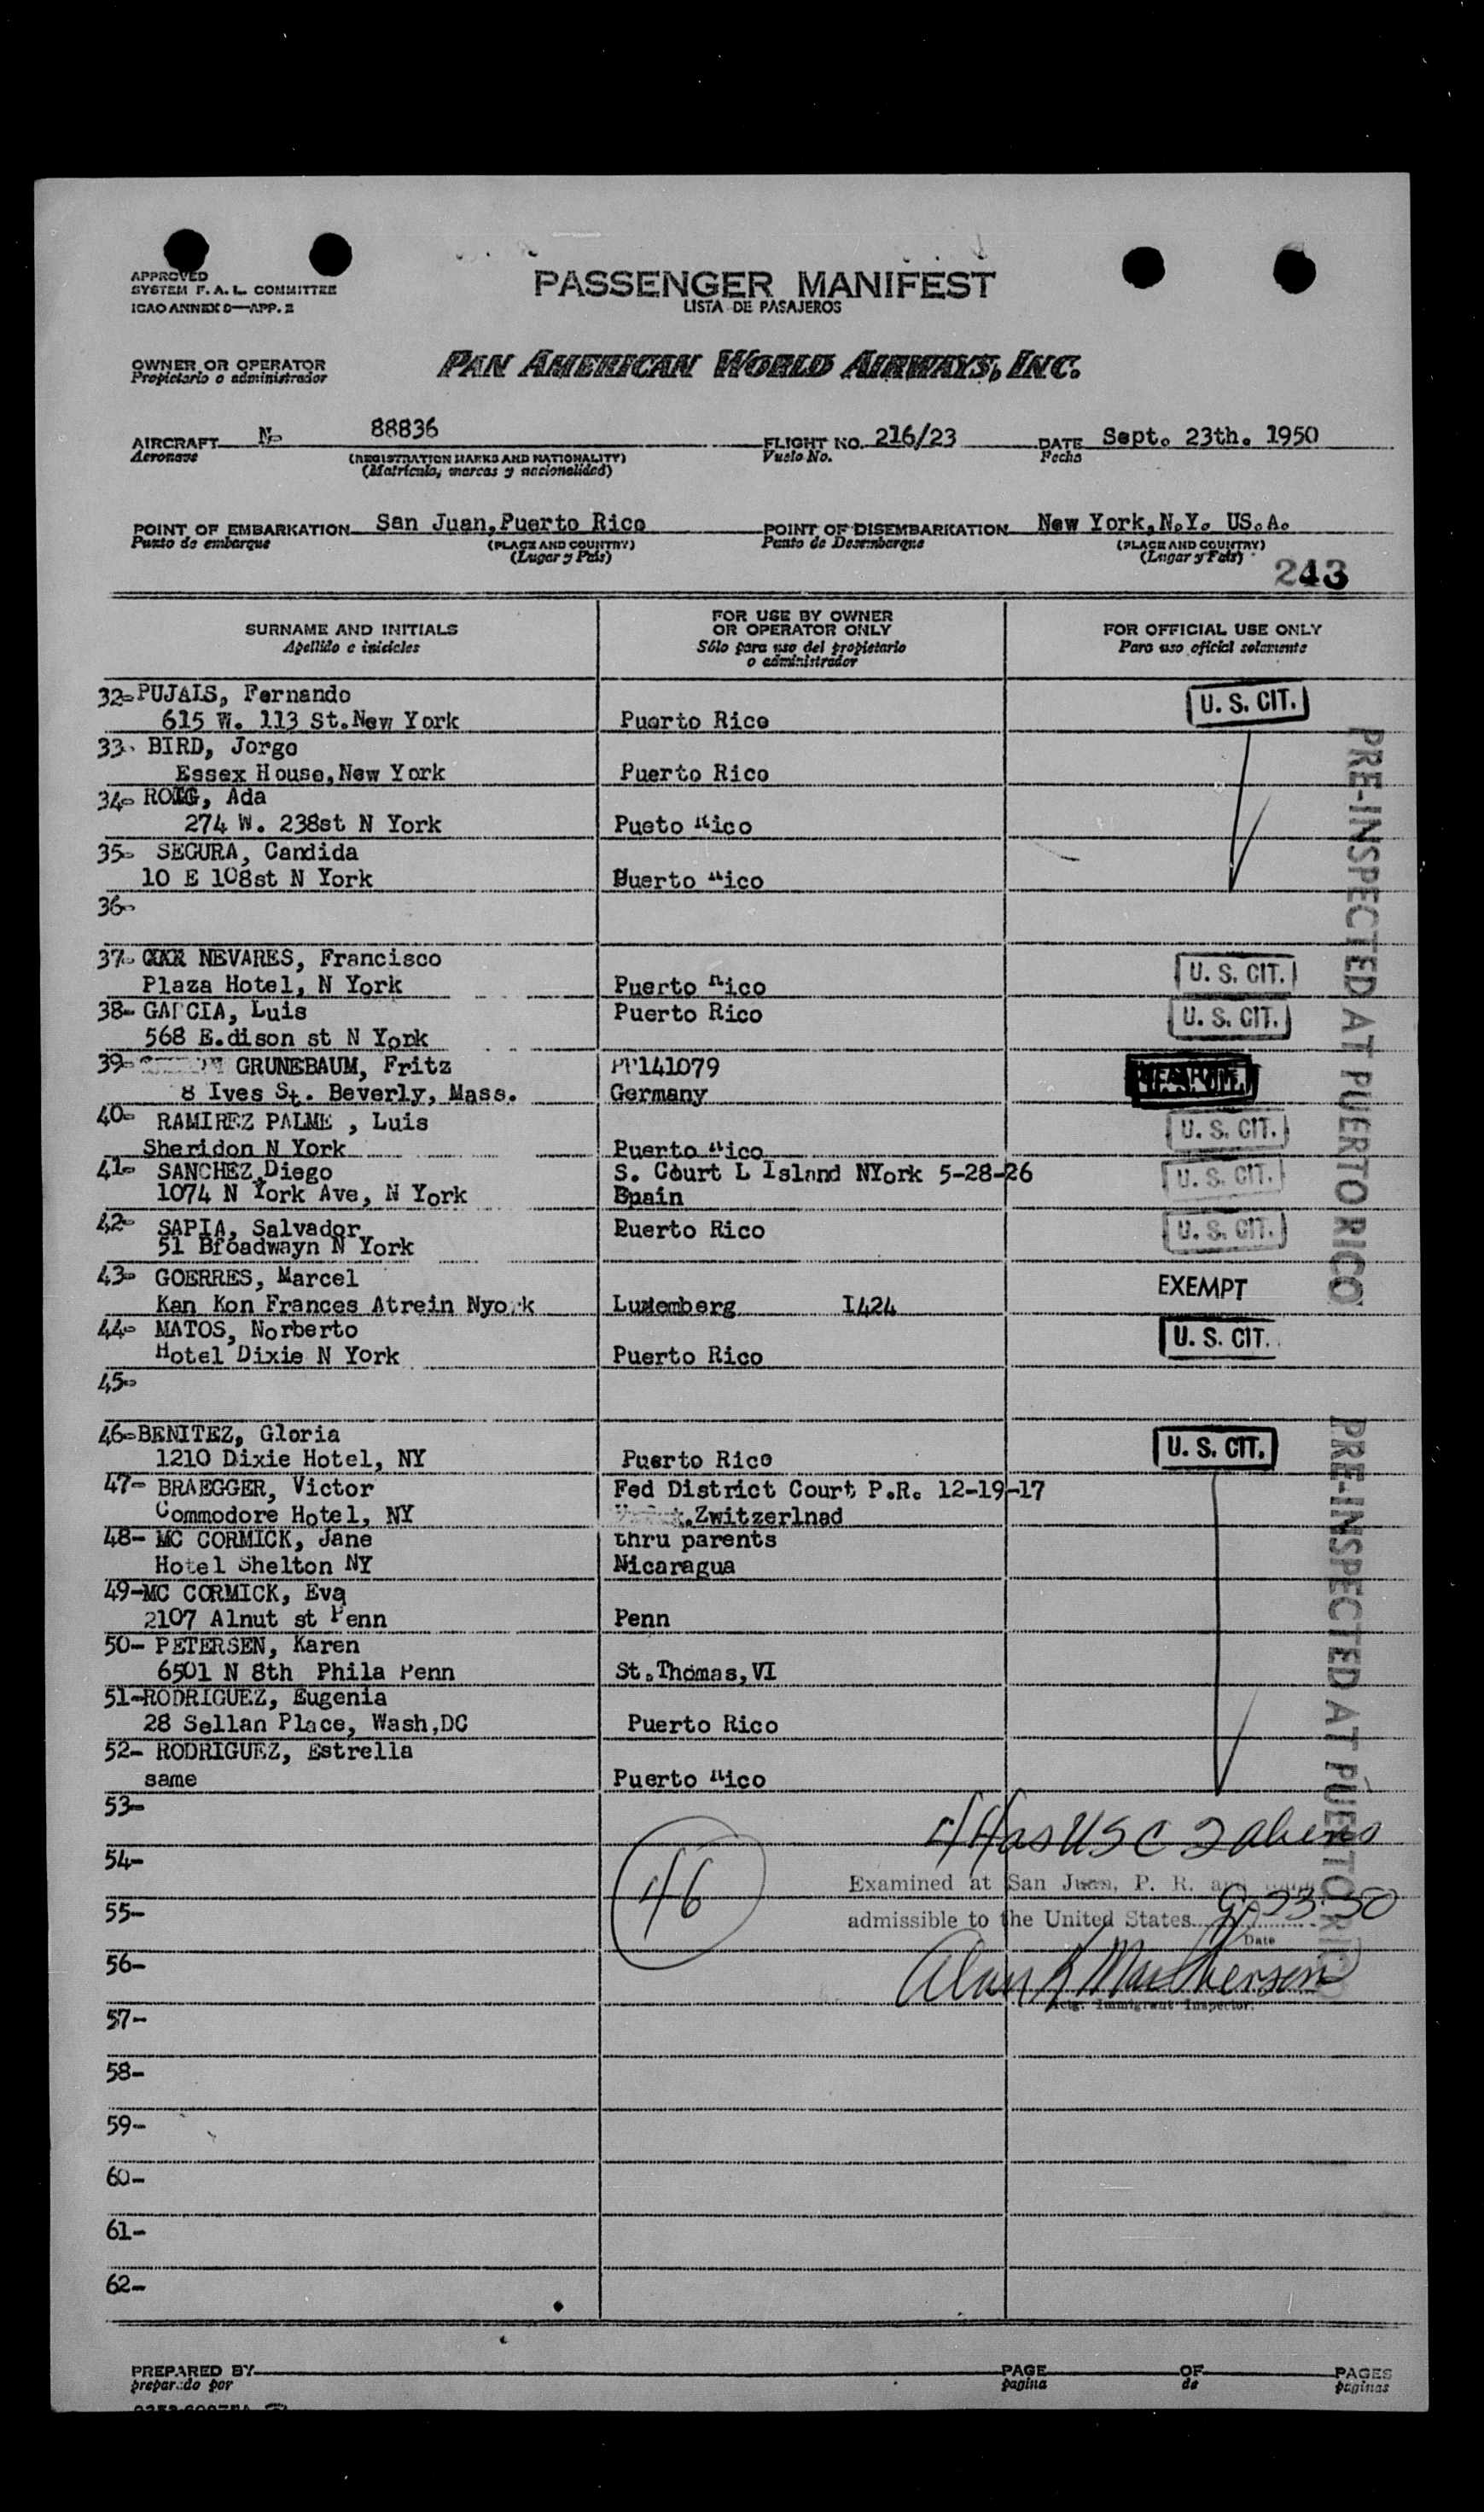 APPROVED
SYSTEM F. A. L. COMMITTEE
ICAO ANNEX 9—APP. 2
PASSENGER MANIFEST
LISTA DE PASAJEROS
OWNER OR OPERATOR
Propietario o administrador
PAN AMERICAN WORLD AIRWAYS, INC.
AIRCRAFT N- 88836 FLIGHT NO. 216/23 DATE Sept. 23th. 1950
Aeronave (REGISTRATION MARKS AND NATIONALITY) Vuelo No. Fecha
(Matrícula, marcas y nacionalidad)
POINT OF EMBARKATION San Juan, Puerto Rico POINT OF DISEMBARKATION New York, N.Y. US.A.
Punto de embarque (PLACE AND COUNTRY) Punto de Desembarque (PLACE AND COUNTRY)
(Lugar y País) (Lugar y País)
243
SURNAME AND INITIALS FOR USE BY OWNER OR OPERATOR ONLY FOR OFFICIAL USE ONLY
Apellido e iniciales Sólo para uso del propietario o administrador Para uso oficial solamente
32- PUJALS, Fernando U. S. CIT.
615 W. 113 St. New York Puerto Rico
33- BIRD, Jorge
Essex House, New York Puerto Rico
34- ROIG, Ada
274 W. 238st N York Pueto Rico
35- SEGURA, Candida
10 E 108st N York Puerto Rico
36-
37- NEVARES, Francisco U. S. CIT.
Plaza Hotel, N York Puerto Rico
38- GARCIA, Luis Puerto Rico U. S. CIT.
568 E.dison st N York
39- GRUNEBAUM, Fritz PP141079
8 Ives St. Beverly, Mass. Germany
40- RAMIREZ PALME , Luis U. S. CIT.
Sheridon N York Puerto Rico
41- SANCHEZ, Diego S. Court L Island NYork 5-28-26 U. S. CIT.
1074 N York Ave, N York Spain
42- SAPIA, Salvador Puerto Rico U. S. CIT.
51 Broadwayn N York
43- GOERRES, Marcel EXEMPT
Kan Kon Frances Atrein Nyork Luxemberg I424
44- MATOS, Norberto U. S. CIT.
Hotel Dixie N York Puerto Rico
45-
46- BENITEZ, Gloria U. S. CIT.
1210 Dixie Hotel, NY Puerto Rico
47- BRAEGGER, Victor Fed District Court P.R. 12-19-17
Commodore Hotel, NY Zwitzerlnad
48- MC CORMICK, Jane thru parents
Hotel Shelton NY Nicaragua
49-MC CORMICK, Eva
2107 Alnut st Penn Penn
50- PETERSEN, Karen
6501 N 8th Phila Penn St. Thomas, VI
51-RODRIGUEZ, Eugenia
28 Sellan Place, Wash,DC Puerto Rico
52- RODRIGUEZ, Estrella
same Puerto Rico
53-
44 as USC 2 aliens
54-
46
Examined at San Juan, P. R. and
55-
admissible to the United States 9-23-50
Date
56-
Alan K MacPherson
Actg. Immigrant Inspector.
57-
58-
59-
60-
61-
62-
PRE-INSPECTED AT PUERTO RICO
PRE-INSPECTED AT PUERTO RICO
PREPARED BY PAGE OF PAGES
preparado por pagina de paginas